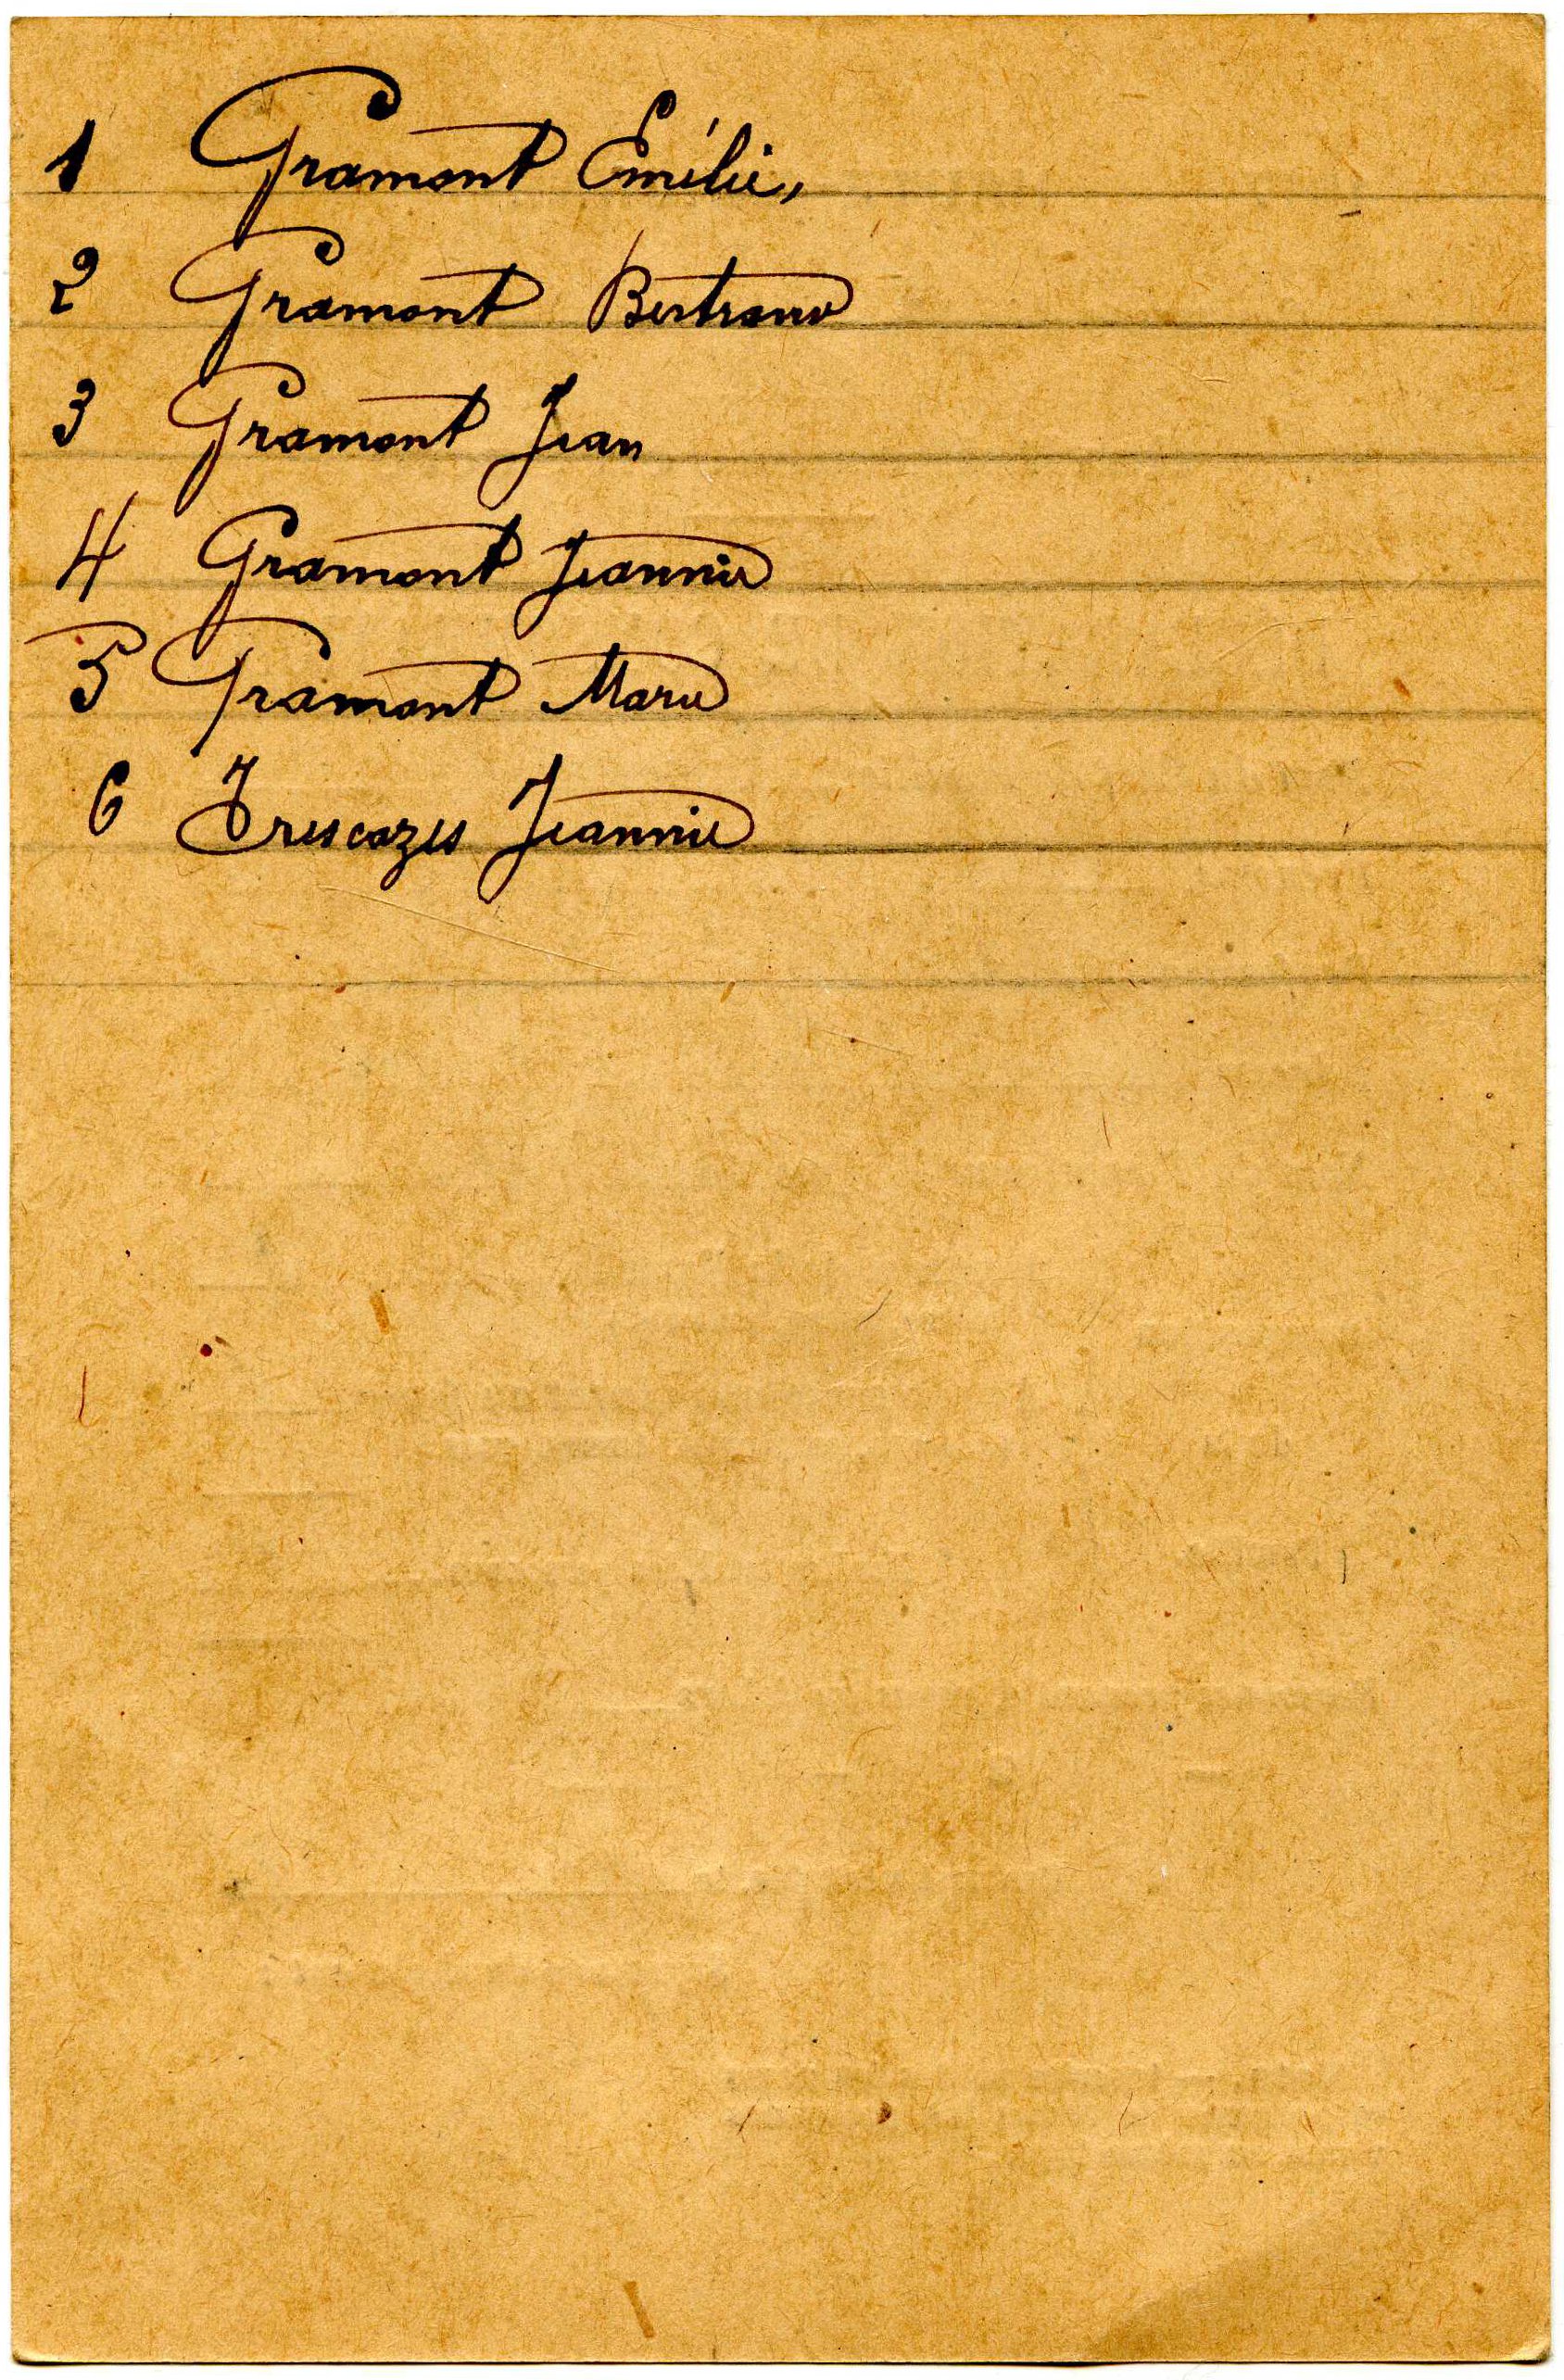 1 Gramont Emilie,
2 Gramont Bertrand
3 Gramont Jean
4 Gramont Jeannie
5 Gramont Marie
6 Trescazes Jeannie